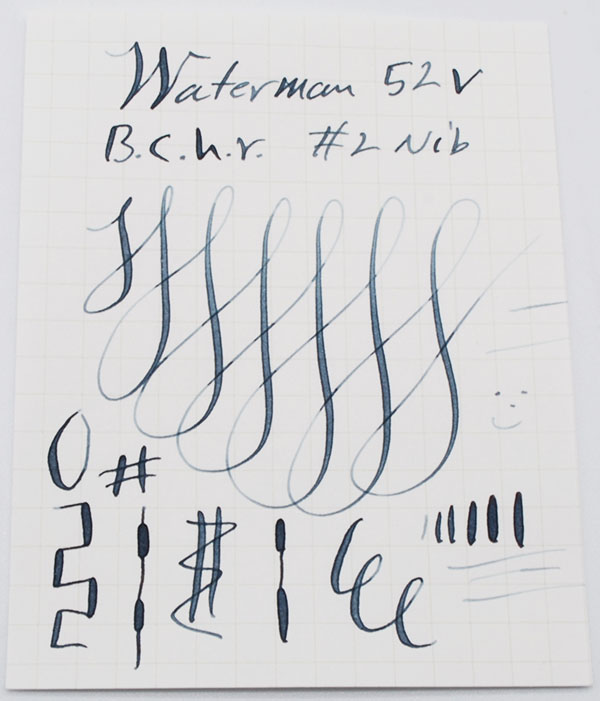 Waterman 52v
B.c.h.r. #2 Nib
0 #
$